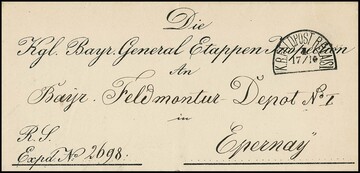 Die
Kgl. Bayr. General Etappen
An
Bayr. Feldmontur-Depot No. I
in
R.S.
Epernay
Expd. No 2698.
17/10